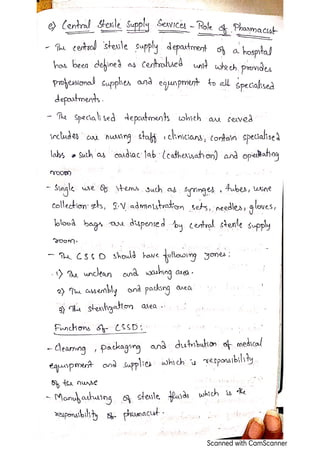 e) Central Sterile Supply Services - Role of Pharmacist
- The central sterile supply department of a hospital
has been defined as centralised unit which provides
professional supplies and equipment to all specialised
departments.
- The specialised departments which are served
includes are nursing staff, clinicians, contain specialised
labs such as cardiac lab (catherisation) and operating
room
- Single use of items such as syringes, tubes, urine
collection sets, I.V administration sets, needles, gloves,
blood bags are dispensed by central sterile supply
room.
- The CSSD should have following zones:
1) The unclean and washing area.
2) The assembly and packing area
3) The sterilization area.
Functions of CSSD:
- Cleaning, packaging and distribution of medical
equipment and supplies which is responsibility
of the nurse
- Manufacturing of sterile fluids which is the
responsibility of pharmacist.
Scanned with CamScanner